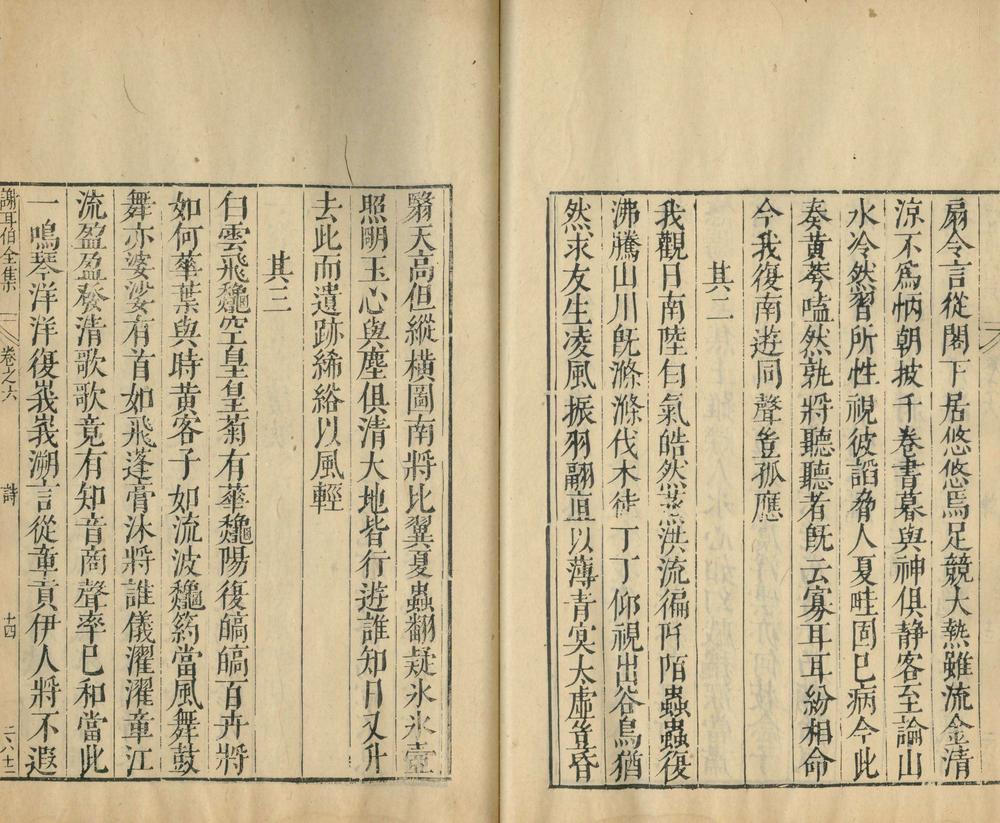 扇令言從閣下居悠悠焉足競大熱雖流金清
涼不為惱朝披千卷書暮與神俱静客至論山
水冷然習所性視彼謟脅人夏畦固已病今此
奏黃琴嗑然孰將聽聽者旣云寡耳耳紛相命
今我復南遊同聲豈孤應
其二
我觀日南陸白氣皓然蒸洪流徧阡陌蟲蟲復
沸騰山川旣滌滌伐木徒丁丁仰視出谷鳥猶
然求友生凌風振羽翮直以薄青冥太虛豈昏
翳天高但縱橫圖南將比翼夏蟲翻疑氷氷壺
照朗玉心與塵俱清大地皆行遊誰知日又升
去此而遺跡絺綌以風輕
其三
白雲飛龝空皇皇菊有華龝陽復皜皜百卉將
如何華葉與時黃客子如流波龝葯當風舞鼓
舞亦婆娑有首如飛蓬膏沐將誰儀濯濯章江
流盈盈發清歌歌竟有知音商聲率巳和當此
一鳴琴洋洋復峩峩溯言從章貢伊人將不遐
謝耳伯全集 卷之六 詩 十四